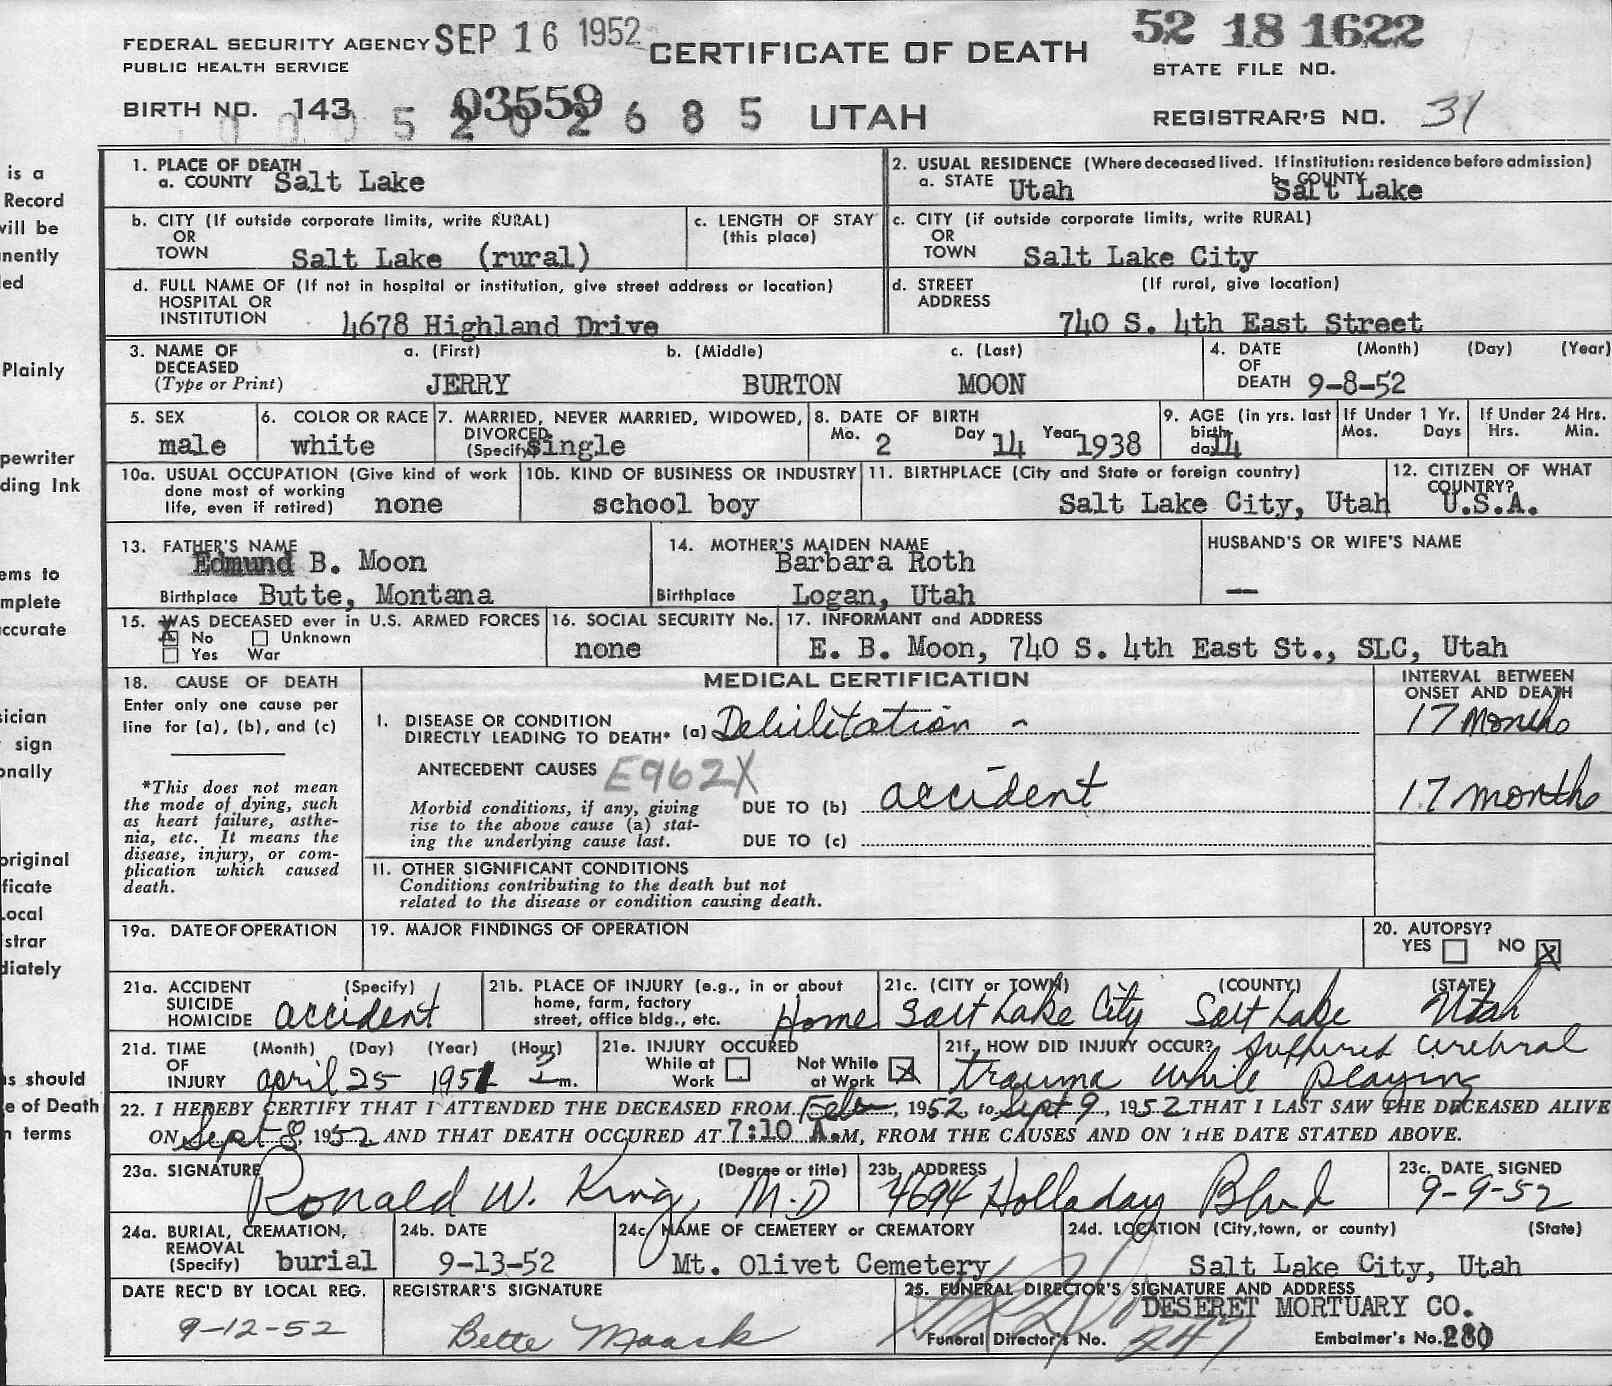 FEDERAL SECURITY AGENCY SEP 16 1952 CERTIFICATE OF DEATH 52 18 1622
PUBLIC HEALTH SERVICE STATE FILE NO.
BIRTH NO. 143 03559 UTAH REGISTRAR'S NO. 31
0005202685
1. PLACE OF DEATH
a. COUNTY Salt Lake
2. USUAL RESIDENCE (Where deceased lived. If institution: residence before admission)
a. STATE Utah b. COUNTY Salt Lake
b. CITY (If outside corporate limits, write RURAL)
OR
TOWN Salt Lake (rural)
c. LENGTH OF STAY
(this place)
c. CITY (if outside corporate limits, write RURAL)
OR
TOWN Salt Lake City
d. FULL NAME OF (If not in hospital or institution, give street address or location)
HOSPITAL OR
INSTITUTION 4678 Highland Drive
d. STREET (If rural, give location)
ADDRESS
740 S. 4th East Street
3. NAME OF a. (First) b. (Middle) c. (Last)
DECEASED
(Type or Print) JERRY BURTON MOON
4. DATE (Month) (Day) (Year)
OF
DEATH 9-8-52
5. SEX
male
6. COLOR OR RACE
white
7. MARRIED, NEVER MARRIED, WIDOWED,
DIVORCED
(Specify) single
8. DATE OF BIRTH
Mo. 2 Day 14 Year 1938
9. AGE (in yrs. last
birth
day) 14
If Under 1 Yr.
Mos. Days
If Under 24 Hrs.
Hrs. Min.
10a. USUAL OCCUPATION (Give kind of work
done most of working
life, even if retired) none
10b. KIND OF BUSINESS OR INDUSTRY
school boy
11. BIRTHPLACE (City and State or foreign country)
Salt Lake City, Utah
12. CITIZEN OF WHAT
COUNTRY?
U.S.A.
13. FATHER'S NAME
Edmund B. Moon
Birthplace Butte, Montana
14. MOTHER'S MAIDEN NAME
Barbara Roth
Birthplace Logan, Utah
HUSBAND'S OR WIFE'S NAME
—
15. WAS DECEASED ever in U.S. ARMED FORCES
X No Unknown
Yes War
16. SOCIAL SECURITY No.
none
17. INFORMANT and ADDRESS
E. B. Moon, 740 S. 4th East St., SLC, Utah
18. CAUSE OF DEATH
Enter only one cause per
line for (a), (b), and (c)
*This does not mean
the mode of dying, such
as heart failure, asthe-
nia, etc. It means the
disease, injury, or com-
plication which caused
death.
MEDICAL CERTIFICATION
INTERVAL BETWEEN
ONSET AND DEATH
I. DISEASE OR CONDITION
DIRECTLY LEADING TO DEATH* (a) Debilitation - 17 months
ANTECEDENT CAUSES E962X
Morbid conditions, if any, giving DUE TO (b) accident 17 months
rise to the above cause (a) stat-
ing the underlying cause last. DUE TO (c)
II. OTHER SIGNIFICANT CONDITIONS
Conditions contributing to the death but not
related to the disease or condition causing death.
19a. DATE OF OPERATION
19. MAJOR FINDINGS OF OPERATION
20. AUTOPSY?
YES NO X
21a. ACCIDENT (Specify)
SUICIDE
HOMICIDE accident
21b. PLACE OF INJURY (e.g., in or about
home, farm, factory
street, office bldg., etc. Home
21c. (CITY or TOWN) (COUNTY) (STATE)
Salt Lake City Salt Lake Utah
21d. TIME (Month) (Day) (Year) (Hour)
OF
INJURY april 25 1951 2 m.
21e. INJURY OCCURED
While at Not While
Work at Work X
21f. HOW DID INJURY OCCUR? Suffered cerebral
trauma while playing
22. I HEREBY CERTIFY THAT I ATTENDED THE DECEASED FROM Feb, 1952 to Sept 9, 1952 THAT I LAST SAW THE DECEASED ALIVE
ON Sept 8, 1952 AND THAT DEATH OCCURED AT 7:10 A.M, FROM THE CAUSES AND ON THE DATE STATED ABOVE.
23a. SIGNATURE (Degree or title)
Ronald W. King, M.D
23b. ADDRESS
4694 Holladay Blvd
23c. DATE SIGNED
9-9-52
24a. BURIAL, CREMATION,
REMOVAL
(Specify) burial
24b. DATE
9-13-52
24c. NAME OF CEMETERY or CREMATORY
Mt. Olivet Cemetery
24d. LOCATION (City, town, or county) (State)
Salt Lake City, Utah
DATE REC'D BY LOCAL REG.
9-12-52
REGISTRAR'S SIGNATURE
Bette Maack
25. FUNERAL DIRECTOR'S SIGNATURE AND ADDRESS
DESERET MORTUARY CO.
Funeral Director's No. 247 Embalmer's No. 280
is a
Record
will be
nently
ed
Plainly
pewriter
ding Ink
ems to
mplete
ccurate
sician
sign
onally
original
ficate
Local
strar
diately
ns should
e of Death
n terms